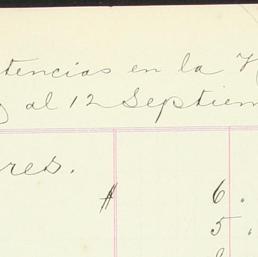 tencias en la
al 12 Septiem
res.
# 6.
5.